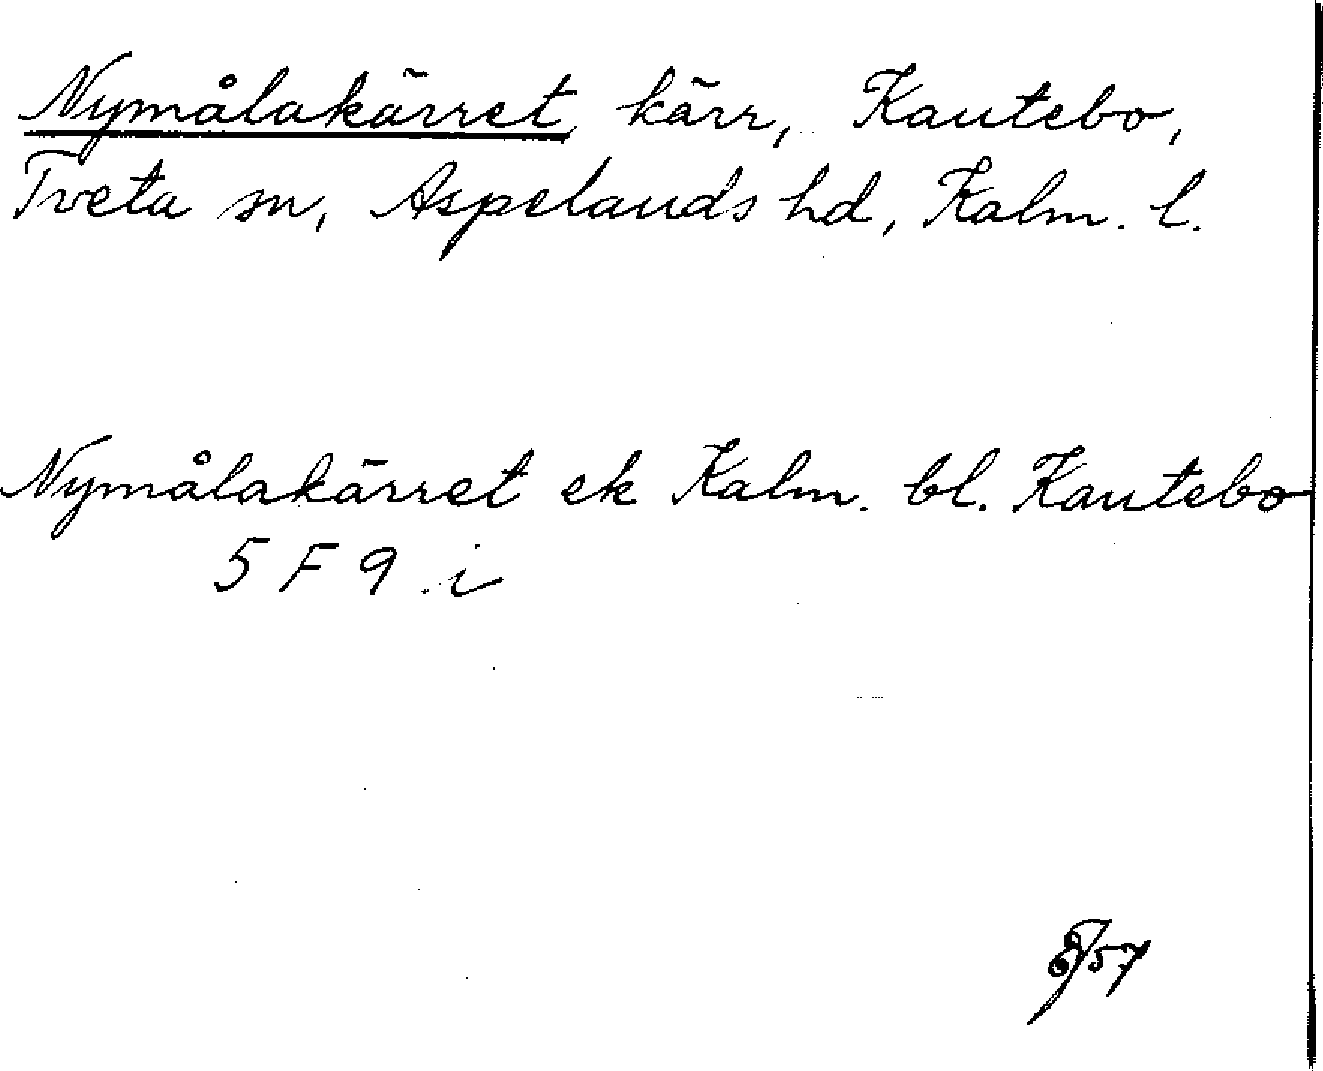 Nymålakärret, kärr, Kautebo,
Tveta sn, Aspelands hd, Kalm. l.
Nymålakärret ek Kalm. bl. Kautebo
5 F 9 i
57